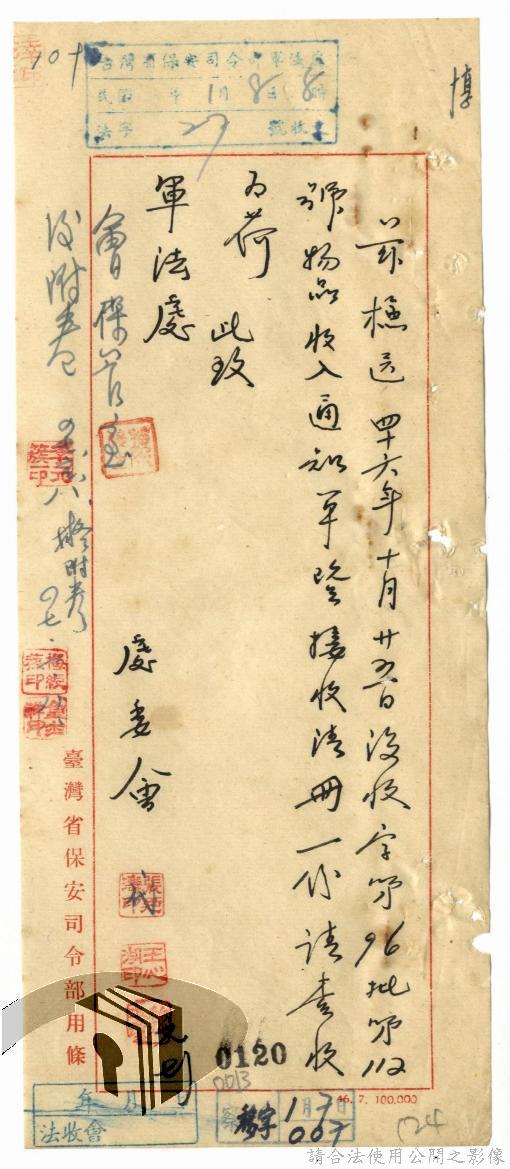 茲檢送四十六年十月廿五日沒收字第96批第112
號物品收入通知單暨接收清冊一份請查收
為荷 此致
軍法處
處委會
會保管室
後附卷
擬附卷
臺灣省保安司令部用條
台灣省保安司令部軍法處
民國 年1月8日 時
法字 27 號收文
0120
0013
年 月 日
法收會
1月7日
007
46. 7. 100,000
124
請合法使用公開之影像